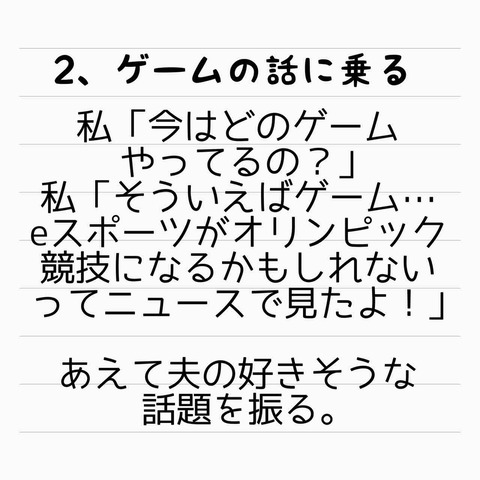 2、ゲームの話に乗る
私「今はどのゲーム
やってるの？」
私「そういえばゲーム…
eスポーツがオリンピック
競技になるかもしれない
ってニュースで見たよ！」
あえて夫の好きそうな
話題を振る。